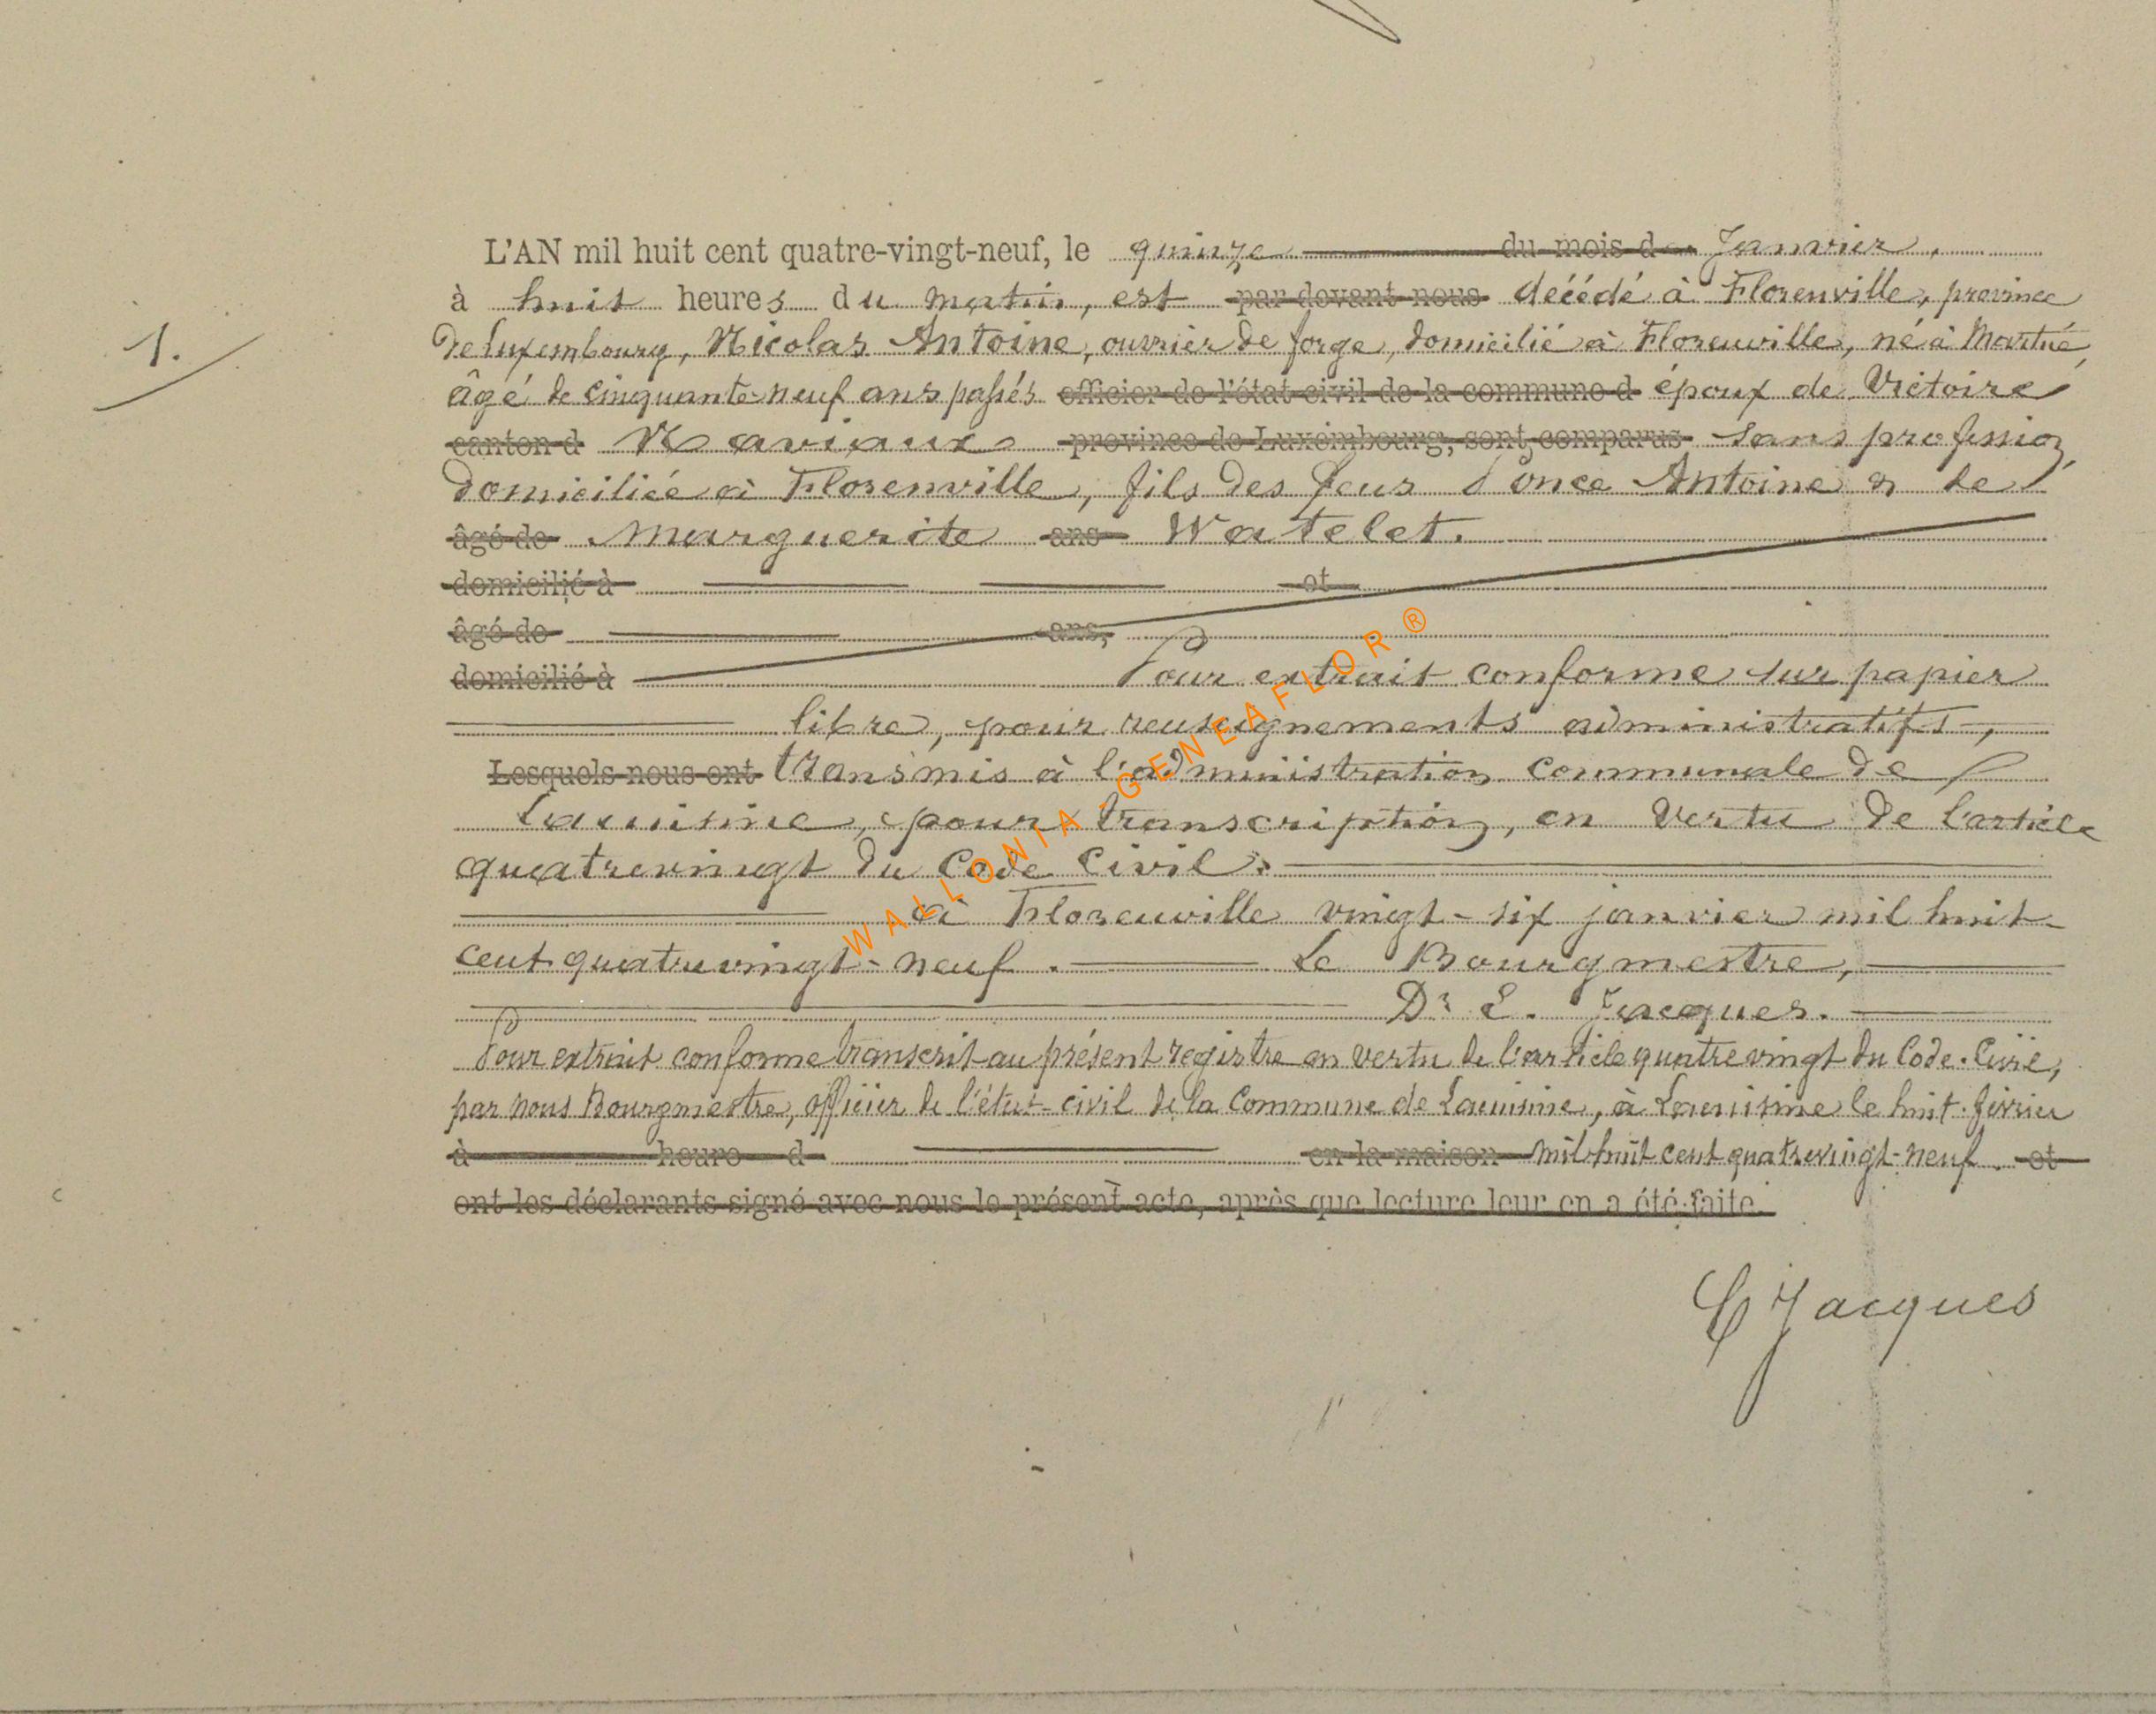 L'AN mil huit cent quatre-vingt-neuf, le quinze du mois de Janvier,
à huit heures du matin, est par devant nous décédé à Florenville, province
1.
de Luxembourg, Nicolas Antoine, ouvrier de forge, domicilié à Florenville, né à Martué,
âgé de cinquante-neuf ans passés officier de l'état civil de la commune d époux de Victoire
canton d Naviaux province de Luxembourg, sont comparus sans profession,
domiciliée à Florenville, fils des feus Ponce Antoine & de
âgé de Marguerite ans Watelet.
domicilié à et
âgé de ans,
domicilié à Pour extrait conforme sur papier
libre, pour renseignements administratifs,
Lesquels nous ont transmis à l'administration communale de
Lacuisine, pour transcription, en vertu de l'article
quatrevingt du Code Civil.
à Florenville vingt-six janvier mil huit
cent quatrevingt-neuf. Le Bourgmestre,
Dr E. Jacques.
Pour extrait conforme transcrit au présent registre en vertu de l'article quatrevingt du Code Civil,
par nous Bourgmestre, officier de l'état-civil de la Commune de Lacuisine, à Lacuisine le huit février
à heure d en la maison mil huit cent quatrevingt-neuf. et
ont les déclarants signé avec nous le présent acte, après que lecture leur en a été faite.
Jacques
WALLONIA-GENEAFLOR ®